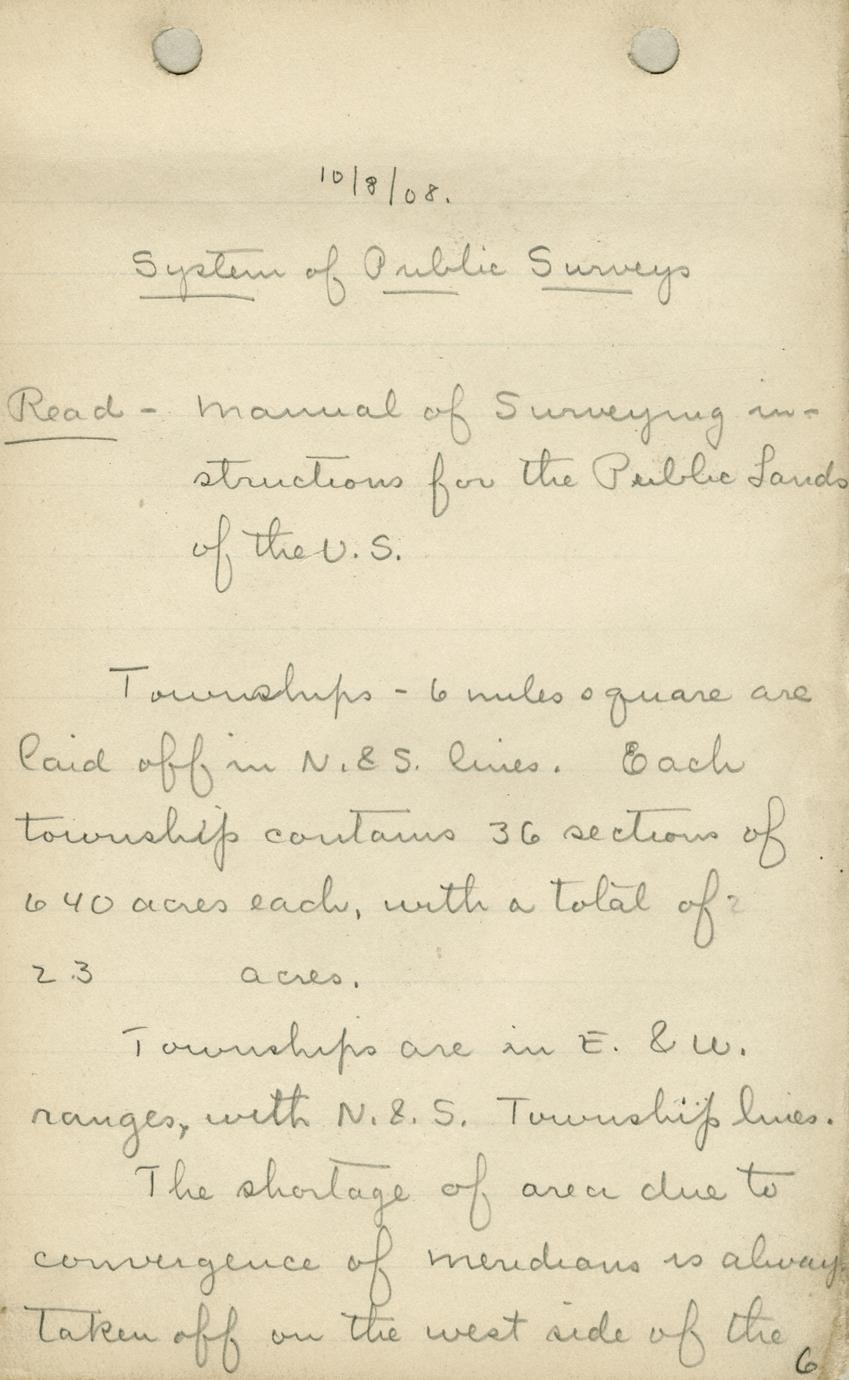 10/8/08.
System of Public Surveys
Read - Manual of Surveying in-
structions for the Public Lands
of the U.S.
Townships - 6 miles square are
laid off in N. & S. lines. Each
township contains 36 sections of
640 acres each, with a total of
23 acres.
Townships are in E. & W.
ranges, with N. & S. Township lines.
The shortage of area due to
convergence of meridians is always
taken off on the west side of the
6